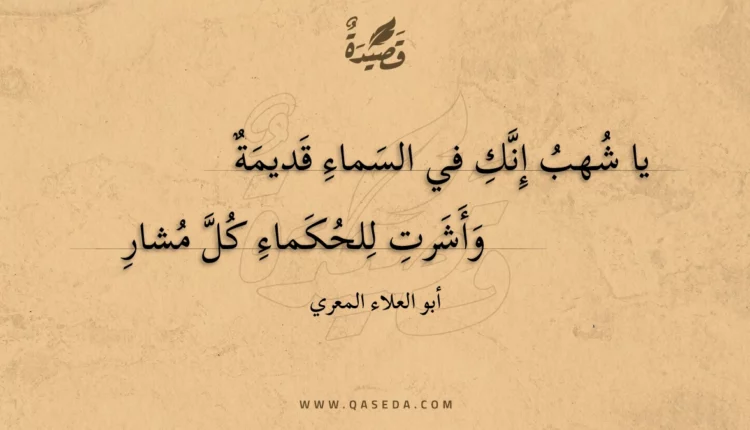 قَصِيْدَةٌ
يا شُهبُ إِنَّكِ في السَماءِ قَديمَةٌ
وَأَشَرتِ لِلحُكَماءِ كُلَّ مُشارِ
أبو العلاء المعري
WWW.QASEDA.COM